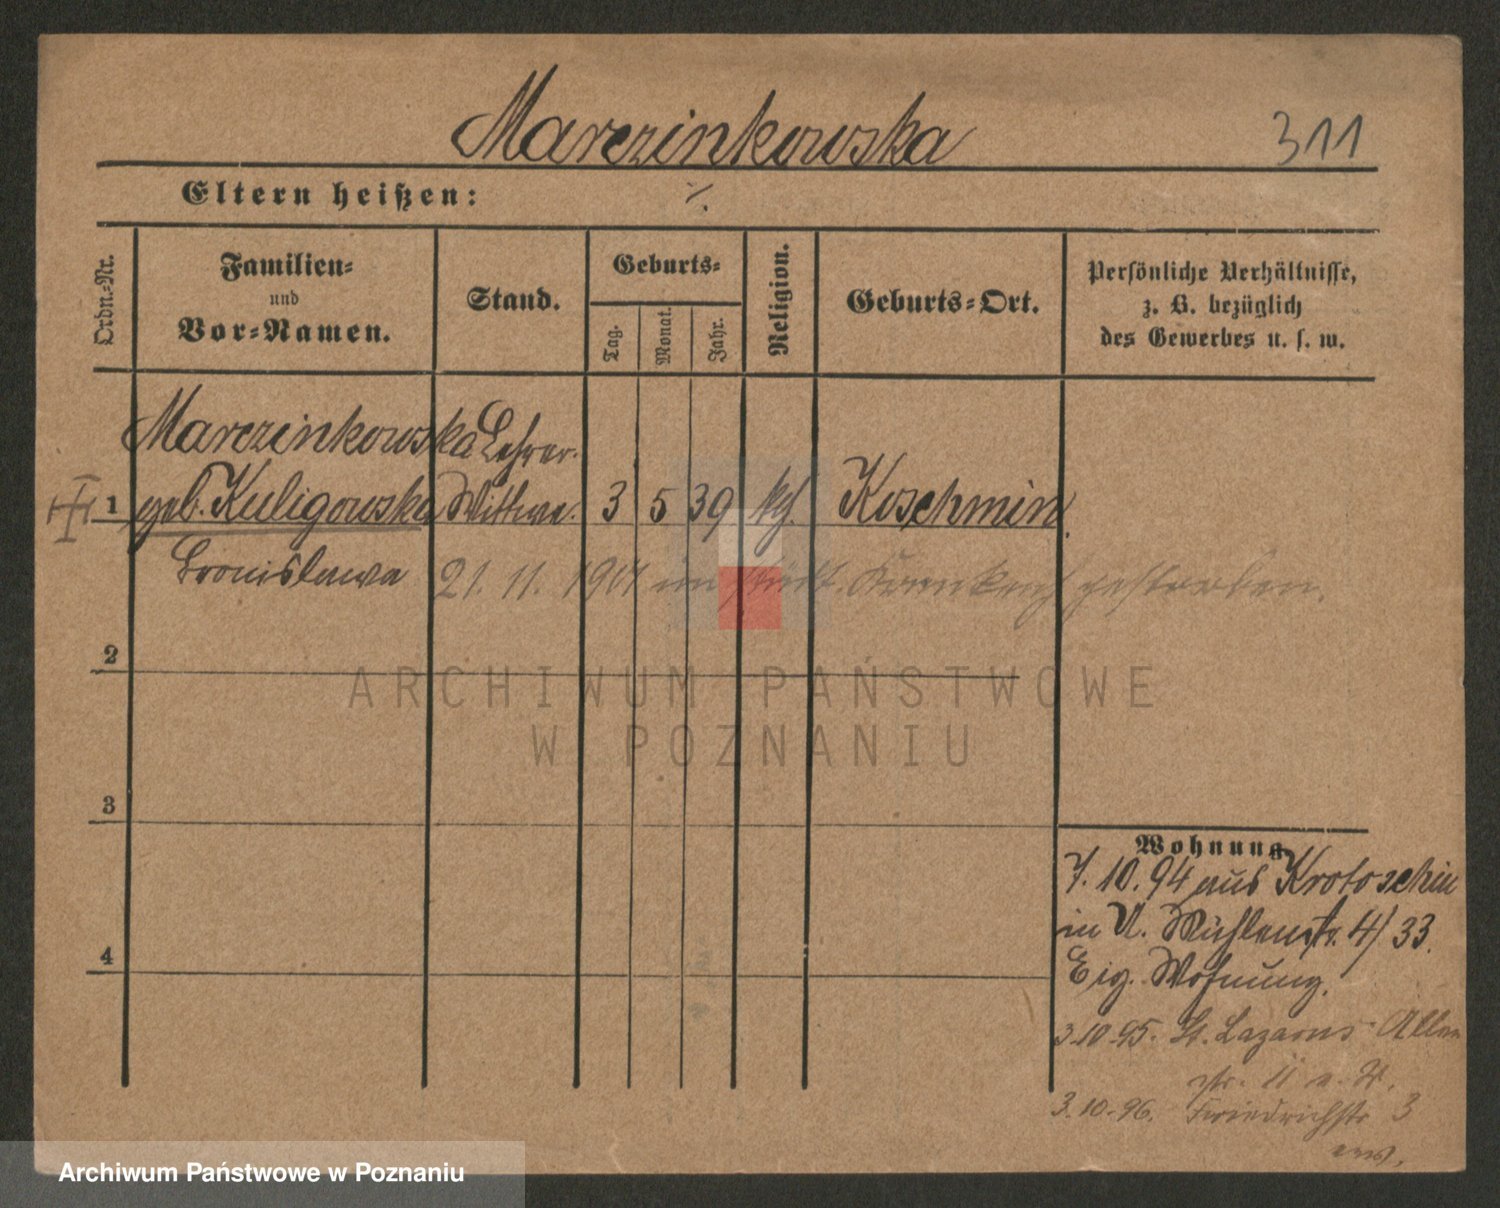 Marczinkowska
311
Eltern heißen: ·/.
Ordn.-Nr.
Familien-
und
Vor-Namen.
Stand.
Geburts-
Tag.
Monat.
Jahr.
Religion.
Geburts-Ort.
Persönliche Verhältnisse,
z. B. bezüglich
des Gewerbes u. s. w.
Marczinkowska Lehrer-
1 geb. Kuligowska Wittwe. 3 5 39 kth. Koschmin
Bronislawa 21. 11. 1901 im städt. gestorben.
2
ARCHIWUM PAŃSTWOWE
W POZNANIU
3
4
Wohnung
7. 10. 94 aus Krotoschin
in U. Mühlenstr. 4/33.
Eig. Wohnung.
3.10.95. St. Lazarus
str. 11
3.10.96. Friedrichstr 3
Archiwum Państwowe w Poznaniu